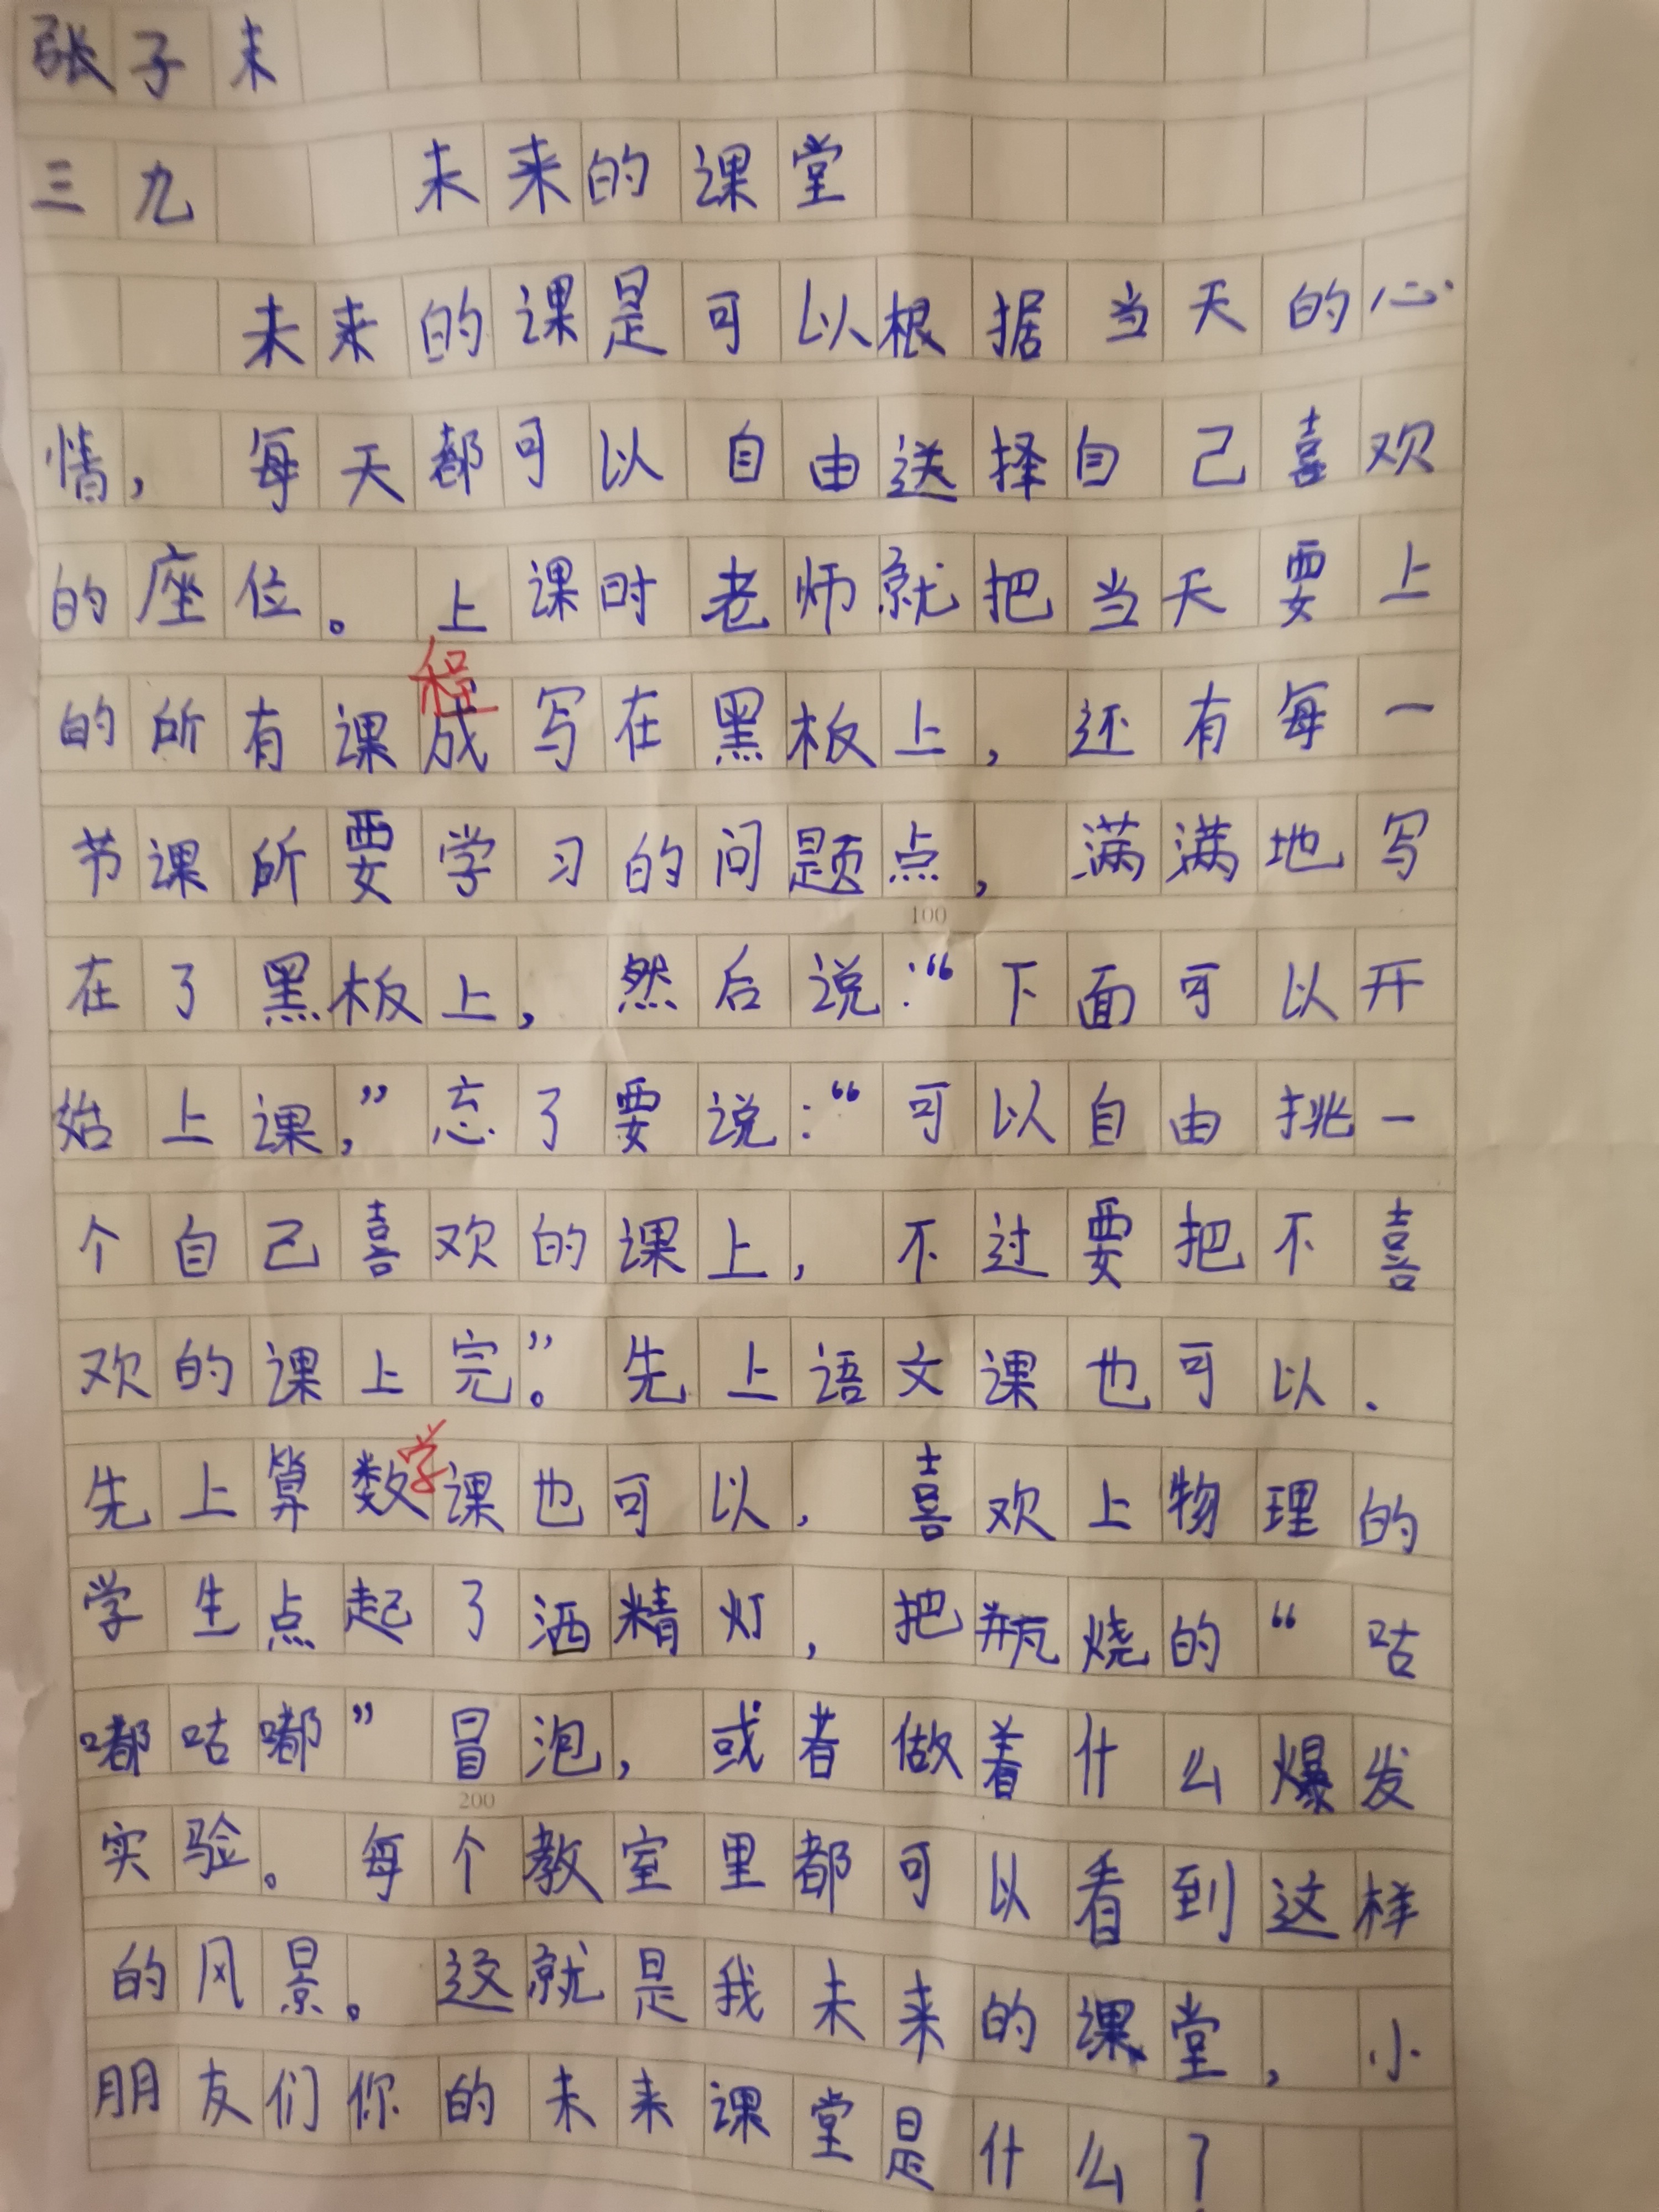 张子未
三九 未来的课堂
未来的课是可以根据当天的心
情，每天都可以自由送择自己喜欢
的座位。上课时老师就把当天要上
程
的所有课成写在黑板上，还有每一
节课所要学习的问题点，满满地写
100
在了黑板上，然后说：“下面可以开
始上课，”忘了要说：“可以自由挑一
个自己喜欢的课上，不过要把不喜
欢的课上完。”先上语文课也可以．
学
先上算数课也可以，喜欢上物理的
学生点起了洒精灯，把瓶烧的“咕
嘟咕嘟”冒泡，或者做着什么爆发
200
实验。每个教室里都可以看到这样
的风景。这就是我未来的课堂，小
朋友们你的未来课堂是什么？